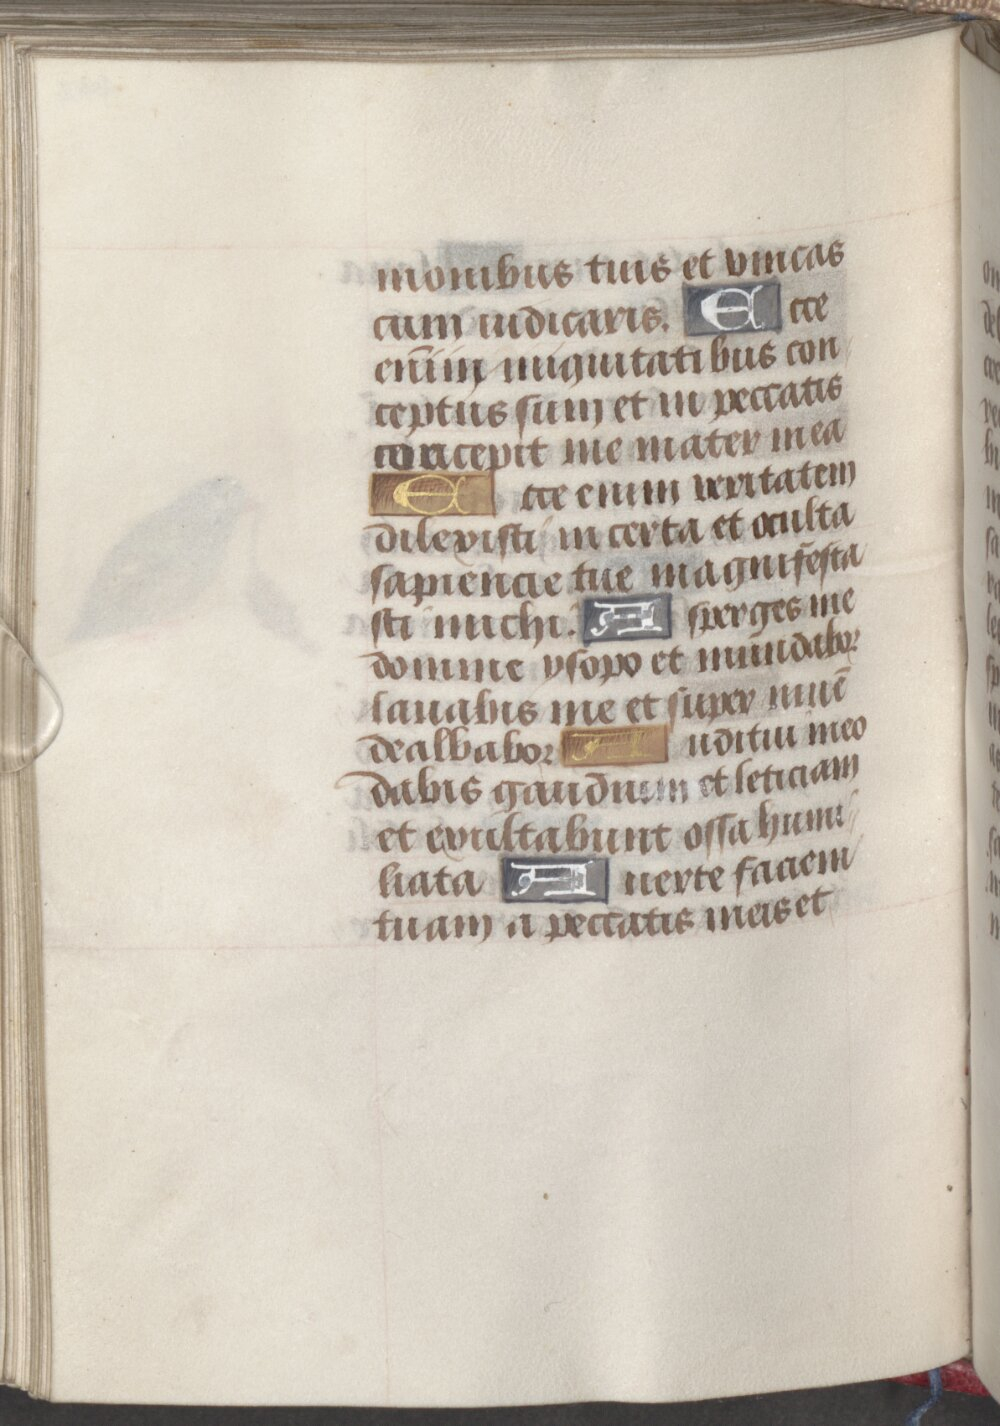 monibus tuis et vincas
cum iudicaris. Ecce
enim iniquitatibus con
ceptus sum et in peccatis
concepit me mater mea
Ecce enim veritatem
dilexisti in certa et oculta
sapiencie tue magnifesta
sti michi. Asperges me
domine ysopo et mundabor
lauabis me et super niuē
dealbabor Auditui meo
dabis gaudium et leticiam
et exultabunt ossa humi
liata Auerte faciem
tuam a peccatis meis et